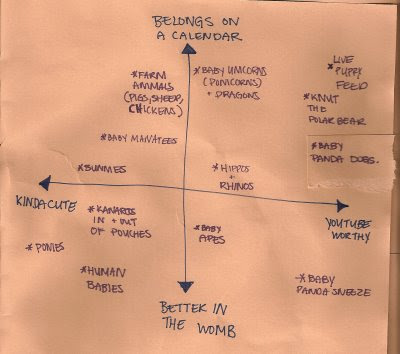 BELONGS ON
A CALENDAR
*LIVE
PUPPY
FEED
*FARM
ANIMALS
(PIGS, SHEEP,
CHICKENS)
*BABY UNICORNS
(PONICORNS)
+ DRAGONS
*KNUT
THE
POLAR BEAR
*BABY MANATEES
*BABY
PANDA DOGS.
*BUNNIES
*HIPPOS
+
RHINOS
KINDA CUTE
YOUTUBE
WORTHY
IN + OUT
OF POUCHES
*BABY
APES
*PONIES
*HUMAN
BABIES
*BABY
PANDA SNEEZE
BETTER IN
THE WOMB